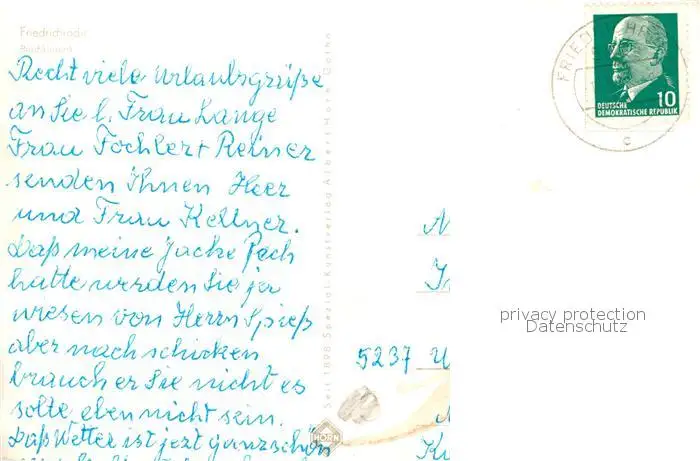 Friedrichroda
Recht viele Urlaubsgrüße
an Sie l. Frau Lange
Frau Tochler+ Reiner
senden Ihnen Herr
und Frau Kellner.
Daß meine Jacke Pech
hatte werden Sie ja
wiesen von Herrn Spieß
aber nach schicken
braucher Sie nicht es
solte eben nicht sein.
Daß Wetter ist jezt ganz schön
Seit 1898 Spezial-Kunstverlag Albert Horn Gotha
HORN
FRIED
DEUTSCHE
DEMOKRATISCHE REPUBLIK
10
c
privacy protection
Datenschutz
5237 U